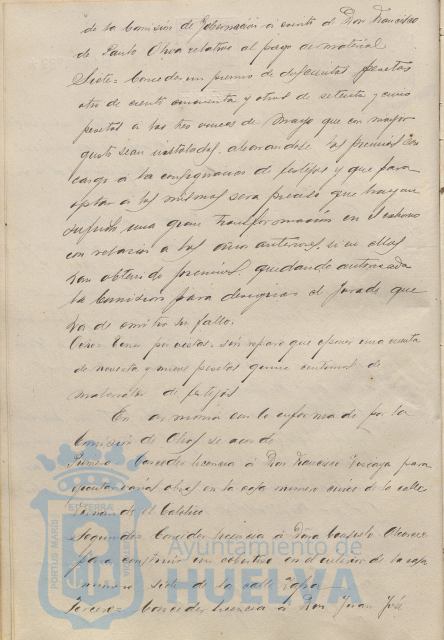 de la Comisión de Gobernación a cuenta de Don Francisco
de Paula Olvea relativo al pago de material
Siete= Conceder un premio de doscientas pesetas
otro de ciento cincuenta y otros de setenta y cinco
pesetas a las tres cruces de Mayo que con mayor
gusto sean instaladas, abonandose los premios con
cargo a la consignacion de festejos y que para
optar a los mismos sera preciso que hayan
sufrido una gran transformacion en el adorno
con relacion a los años anteriores, si en ellas
han obtenido premios, quedando autorizada
la Comision para designar el Jurado que
ha de emitir su fallo.
Ocho= Tener por vistas, sin reparo que oponer una cuenta
de noventa y nueve pesetas quince centimos de
material de festejos
En armonia con lo informado por la
Comisión de Obras se acordo
Primero= Conceder licencia á Don Francisco para
ejecutar varias obras en la casa numero cinco de la calle
Fernando el Catolico
Segundo= Conceder licencia á Doña Consuelo
para construir un cobertizo en el interior de la casa
numero siete de la calle
Tercero= Conceder licencia á Don Juan José
PORTUS MARIS ET TERRÆ
Ayuntamiento de
HUELVA